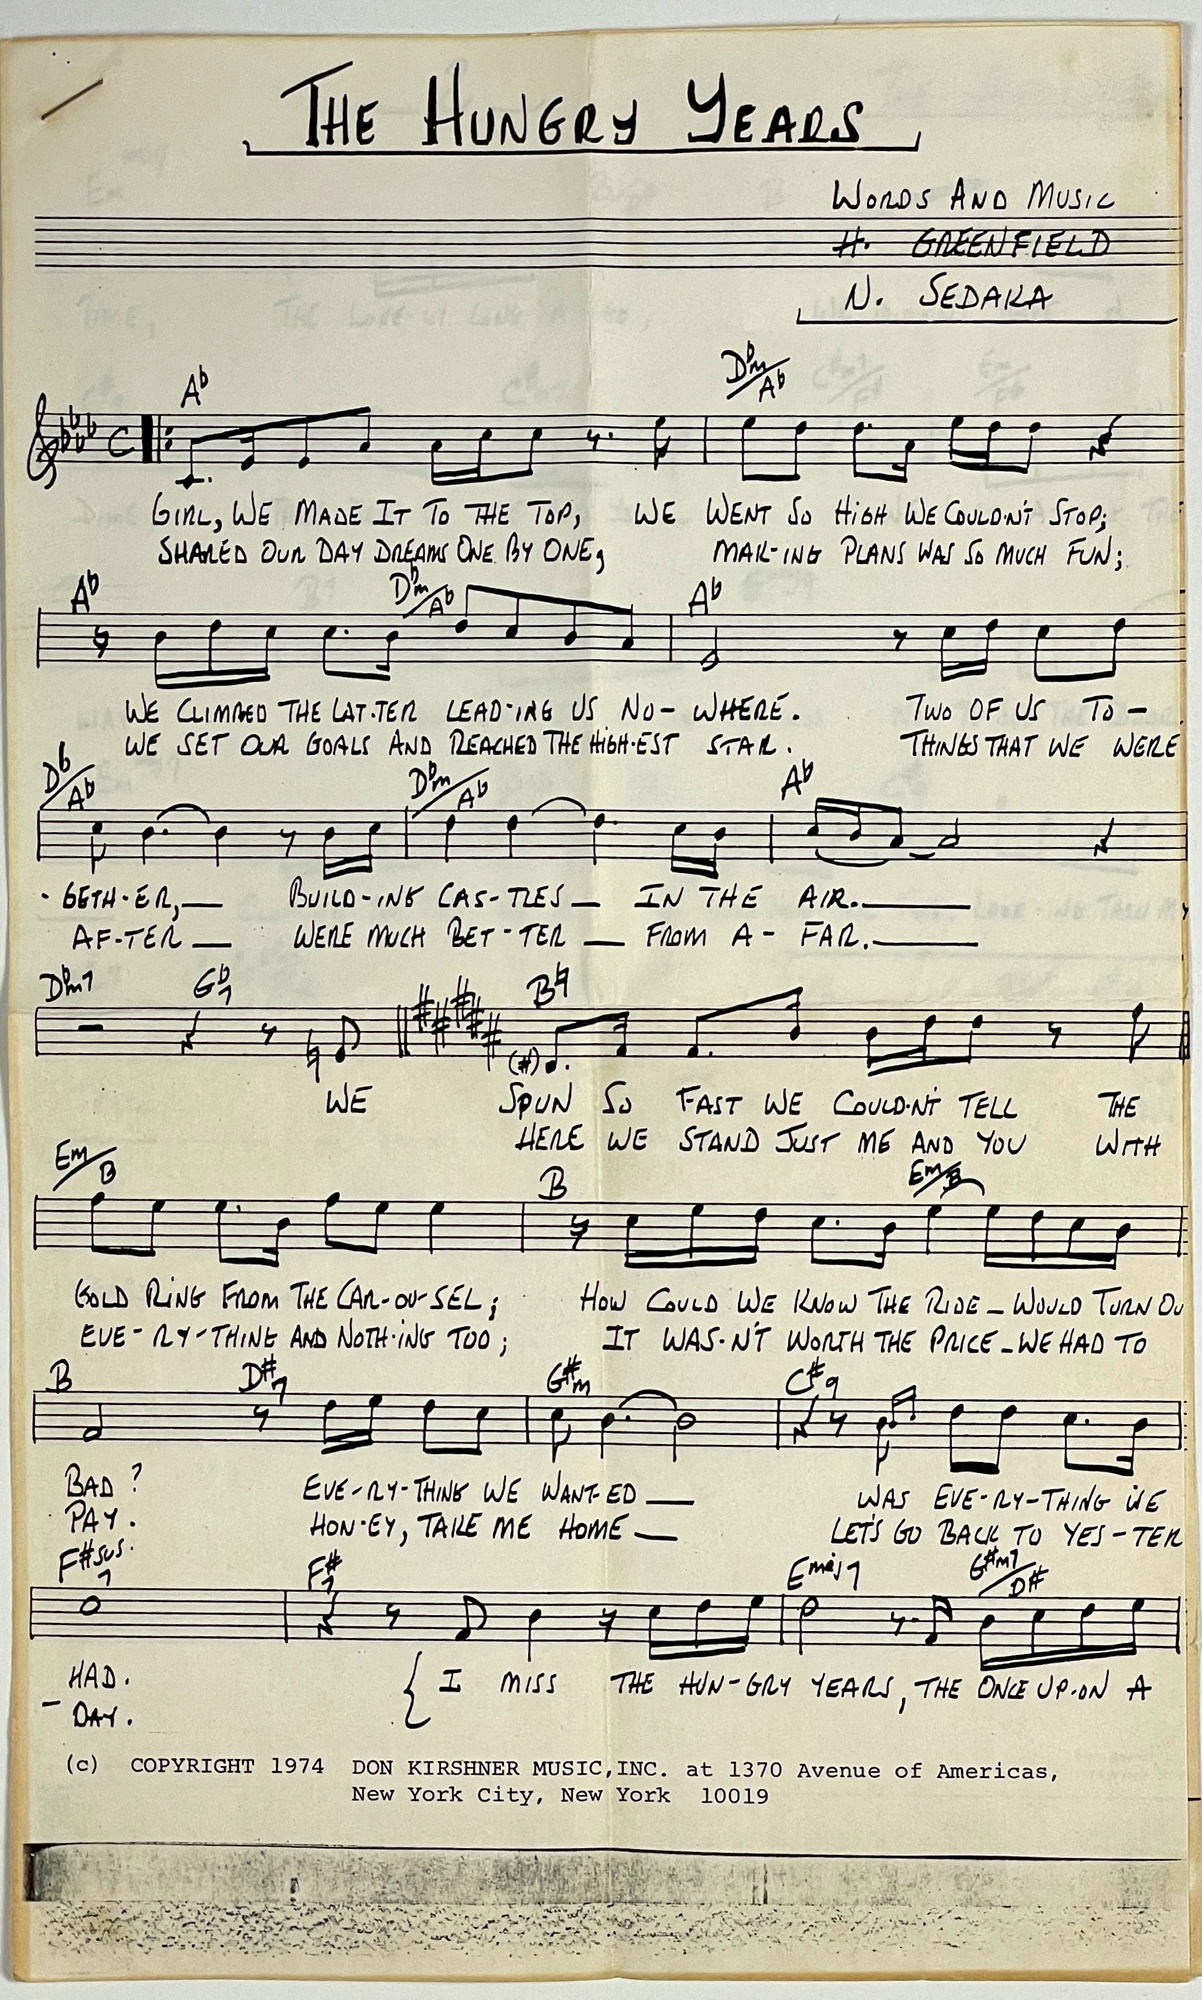 THE HUNGRY YEARS
WORDS AND MUSIC
H. GREENFIELD
N. SEDAKA
A♭ D♭m/A♭
C
GIRL, WE MADE IT TO THE TOP, WE WENT SO HIGH WE COULD-N'T STOP;
SHARED OUR DAY DREAMS ONE BY ONE, MAK-ING PLANS WAS SO MUCH FUN;
A♭ D♭m/A♭ A♭
WE CLIMBED THE LAT-TER LEAD-ING US NO- WHERE. TWO OF US TO-
WE SET OUR GOALS AND REACHED THE HIGH-EST STAR. THINGS THAT WE WERE
D♭/A♭ D♭m/A♭ A♭
- GETH-ER,— BUILD-ING CAS-TLES — IN THE AIR.—
AF-TER — WERE MUCH BET-TER — FROM A- FAR.—
D♭m7 G♭7 B♮
WE SPUN SO FAST WE COULD-N'T TELL THE
HERE WE STAND JUST ME AND YOU WITH
Em/B B Em/B
GOLD RING FROM THE CAR-OU-SEL; HOW COULD WE KNOW THE RIDE — WOULD TURN OU
EVE-RY-THING AND NOTH-ING TOO; IT WAS-N'T WORTH THE PRICE — WE HAD TO
B D#7 G#m C#9
BAD? EVE-RY-THING WE WANT-ED — WAS EVE-RY-THING WE
PAY. HON-EY, TAKE ME HOME — LET'S GO BACK TO YES-TER
F#sus.7 F#7 Emaj7 G#m7/D#
HAD. { I MISS THE HUN-GRY YEARS, THE ONCE UP-ON A
- DAY.
(c) COPYRIGHT 1974 DON KIRSHNER MUSIC,INC. at 1370 Avenue of Americas,
New York City, New York 10019